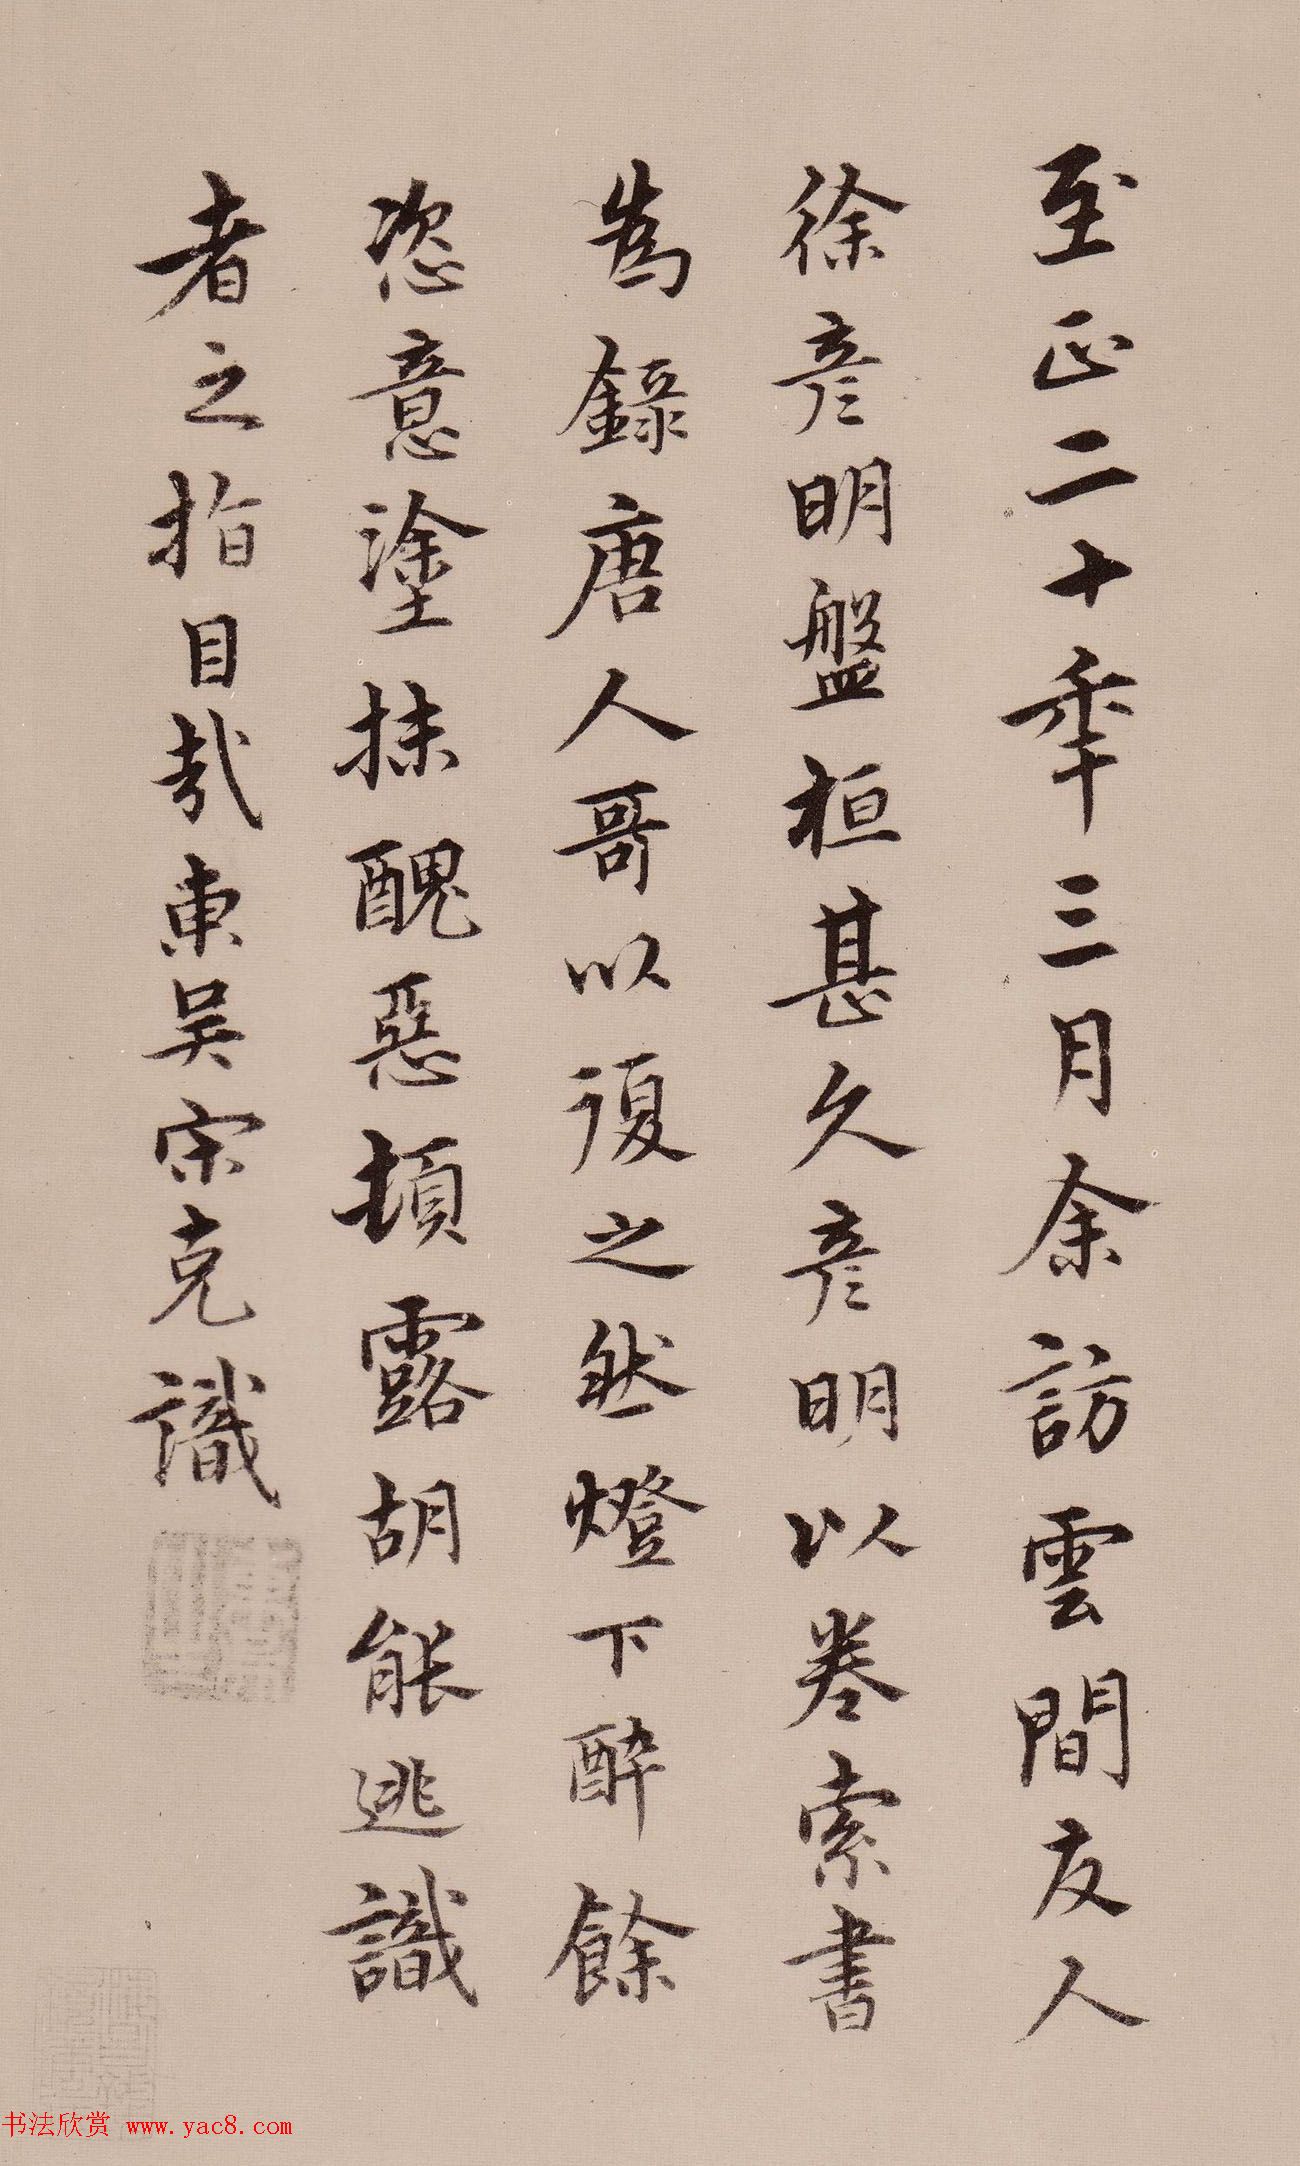 至正二十年三月余訪雲間友人
徐彦明盤桓甚久彦明以卷索書
為録唐人哥以復之然燈下醉餘
恣意塗抹醜惡頓露胡能逃識
者之指目哉東吴宋克識
书法欣赏 www.yac8.com